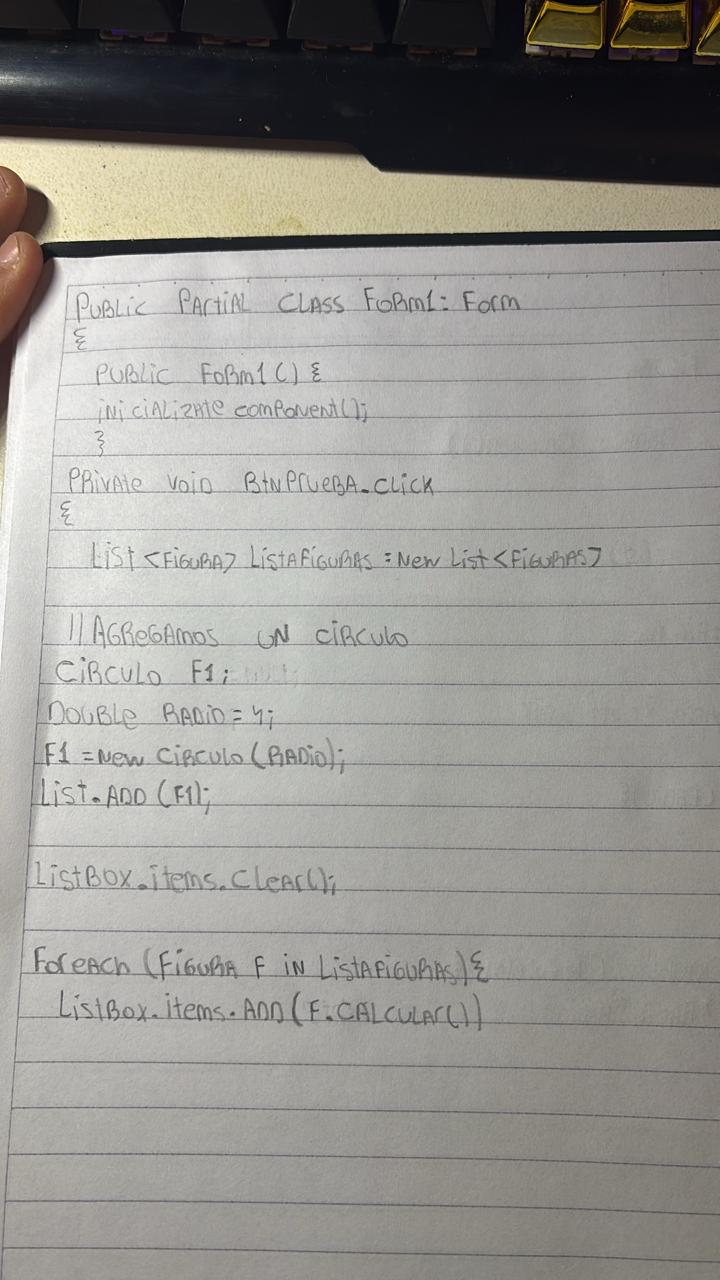 PUBLIC PARTIAL CLASS FORM1: FORM
{
PUBLIC FORM1() {
INICIALIZATE COMPONENT();
}
PRIVATE VOID BTNPRUEBA.CLICK
{
LIST <FIGURA> LISTAFIGURAS = NEW LIST <FIGURAS>
// AGREGAMOS UN CIRCULO
CIRCULO F1;
DOUBLE RADIO = 4;
F1 = NEW CIRCULO (RADIO);
LIST.ADD (F1);
LISTBOX.ITEMS.CLEAR();
FOREACH (FIGURA F IN LISTAFIGURAS) {
LISTBOX.ITEMS.ADD (F.CALCULAR())